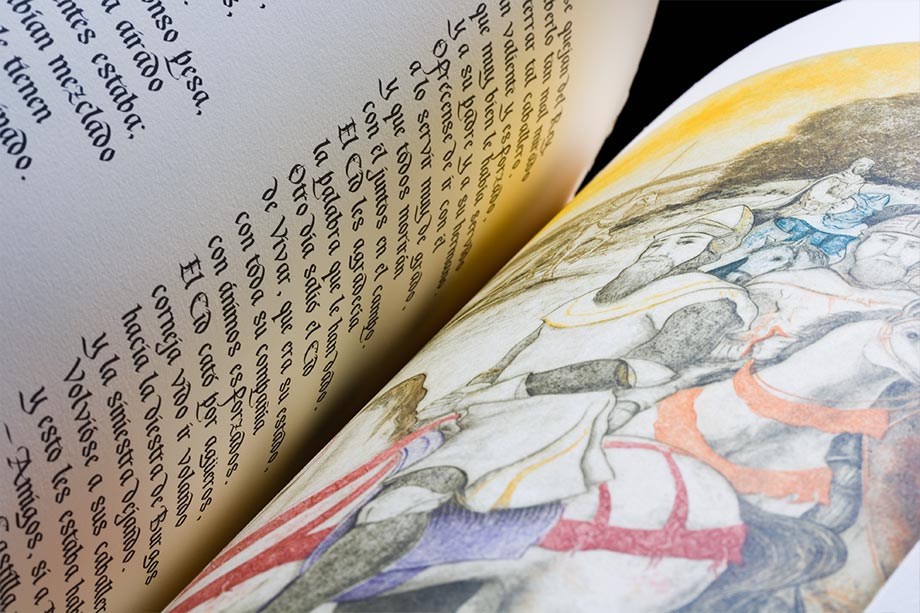 pesa,
airado
estaba;
mezclado
tienen
quejan del Rey
tan mal mirado
tal caballero,
valiente y esforzado,
que muy bien le había servido
Y a su padre y a su hermano.
Ofrécense de ir con él
a lo servir muy de grado,
Y que todos morirán
con él juntos en el campo.
El Cid les agradecía
la palabra que le han dado.
Otro día salió el Cid
de Vivar, que era su estado,
con toda su compañía
con ánimos esforzados.
El Cid cató por agüeros,
corneja vido ir volando
hacia la diestra de Burgos
y la siniestra dejando.
Volvióse a sus
Y esto les estaba
—Amigos, si a